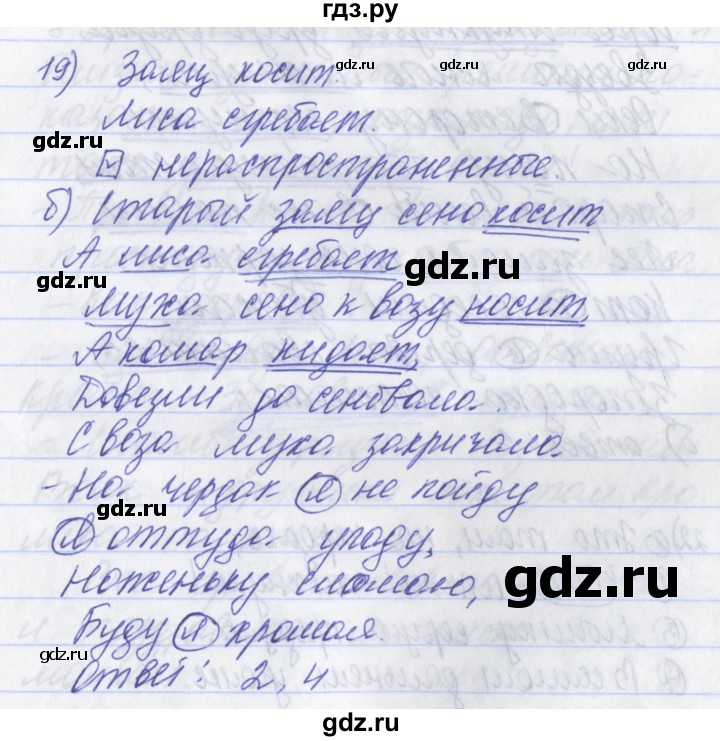 гдз.ру
19) Заяц косит.
gdz.ru gdz.ru gdz.ru
Лиса сгребает.
gdz.ru gdz.ru
☑ нераспространенные.
б) Старый заяц сено косит
А лиса сгребает
gdz.ru gdz.ru
Муха сено к возу носит,
- А комар кидает,
gdz.ru gdz.ru
Довезли до сеновала.
С воза муха закричала.
gdz.ru
- На чердак (я) не пойду
gdz.ru
(Я) оттуда упаду,
Ноженьку сломаю,
gdz.ru
Буду (я) хромая.
gdz.ru gdz.ru
Ответ: 2, 4
gdz.ru
gdz.ru